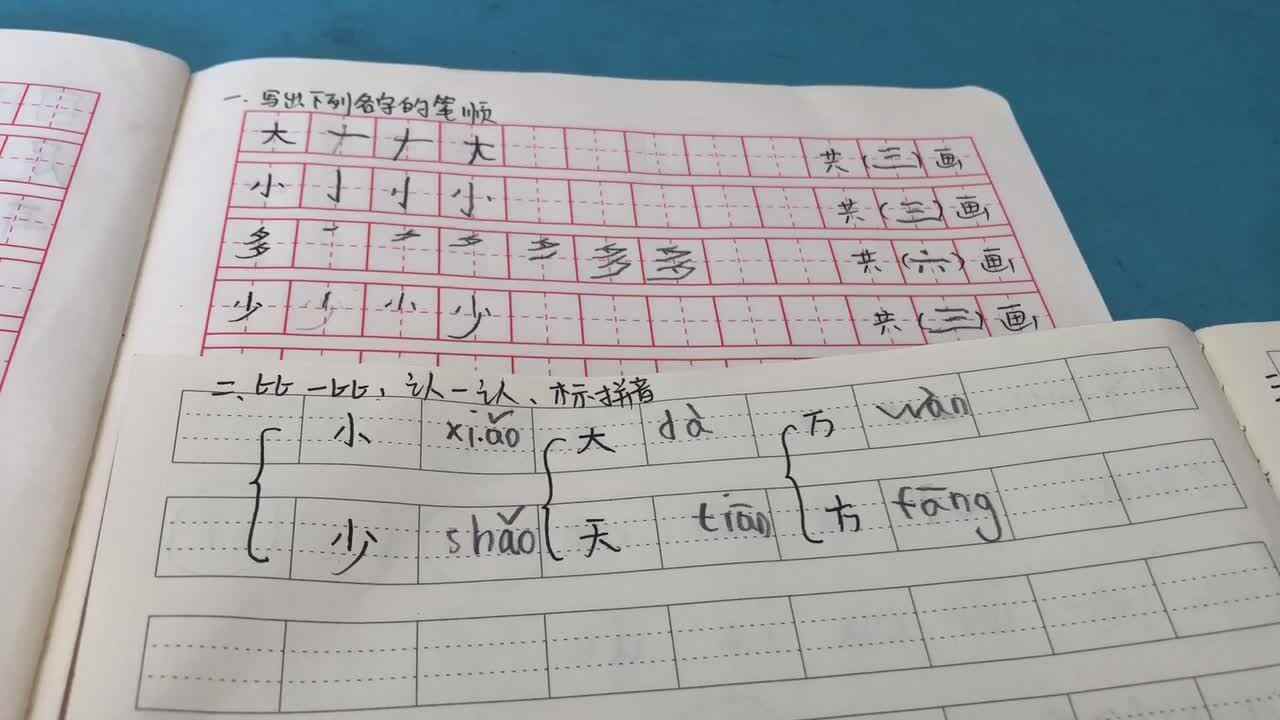 一. 写出下列各字的笔顺
大 一 ナ 大 共(三)画
小 亅 小 共(三)画
多 ノ ク 夕 多 多 共(六)画
少 小 少 共(三)画
二、比一比，认一认、标拼音
小 xiǎo 大 dà 万 wàn
少 shǎo 天 tiān 方 fāng